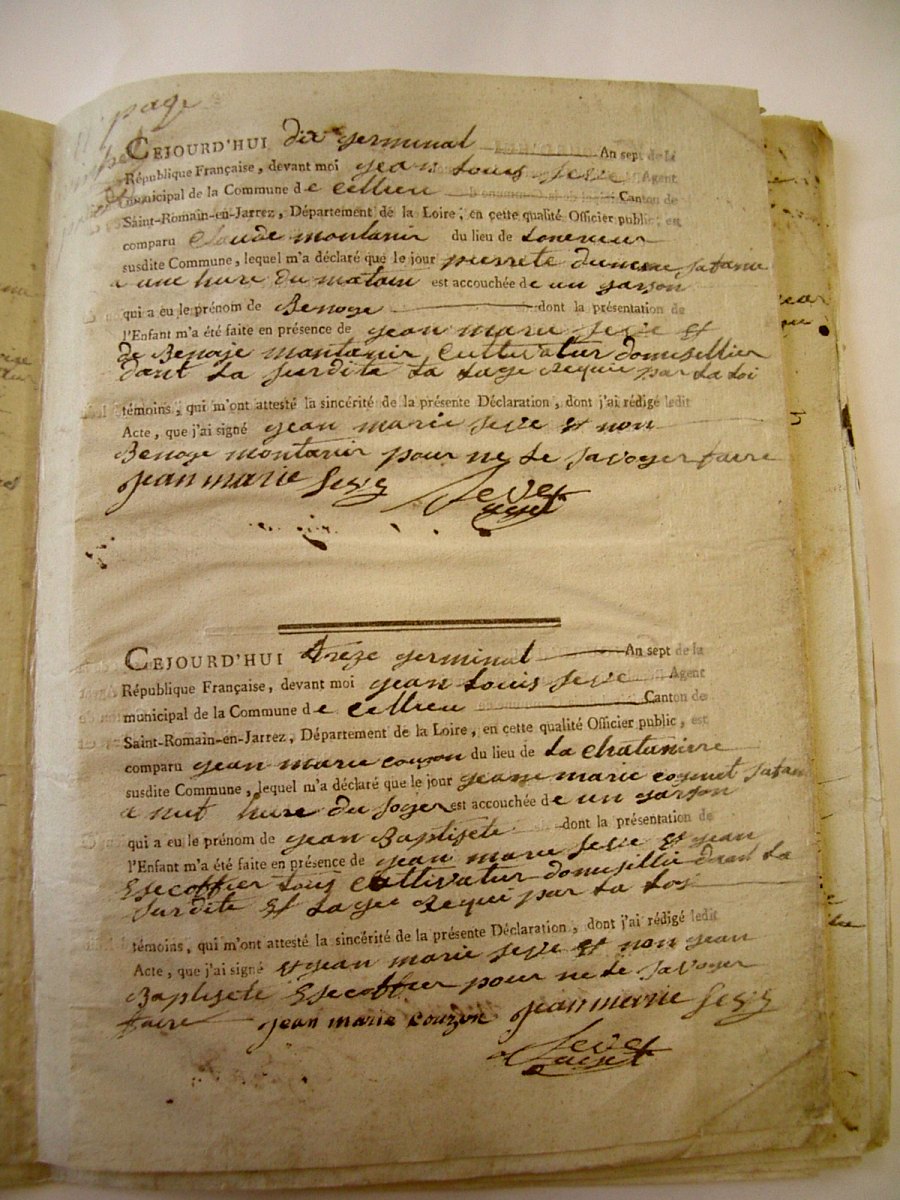 page
CEJOURD'HUI dix germinal An sept de la
République Française, devant moi jean Louis seve Agent
municipal de la Commune de Cellieu Canton de
Saint-Romain-en-Jarrez, Département de la Loire, en cette qualité Officier public, est
comparu Claude montanir du lieu de
susdite Commune, lequel m'a déclaré que le jour pierrete satame
a une hure du matain est accouchée de un garson
qui a eu le prénom de Benoge dont la présentation de
l'Enfant m'a été faite en présence de jean marie seve et
de Benoje montanir Cultivatur domisellier
dant La surdita La Lage Requie par La Loi
témoins, qui m'ont attesté la sincérité de la présente Déclaration, dont j'ai rédigé ledit
Acte, que j'ai signé jean marie seve et non
Benoge montanir pour ne Le savoyer faire
jean marie seve seve
agent
CEJOURD'HUI treze germinal An sept de la
République Française, devant moi jean Louis seve Agent
municipal de la Commune de Cellieu Canton de
Saint-Romain-en-Jarrez, Département de la Loire, en cette qualité Officier public, est
comparu jean marie couzon du lieu de La chataniere
susdite Commune, lequel m'a déclaré que le jour jeane marie satame
a nut hure du soger est accouchée de un garson
qui a eu le prénom de jean Baptisete dont la présentation de
l'Enfant m'a été faite en présence de jean marie seve et jean
Esecoffier tous Cultivatur domisellie dant La
surdite et Lage Requi par La Loi
témoins, qui m'ont attesté la sincérité de la présente Déclaration, dont j'ai rédigé ledit
Acte, que j'ai signé et jean marie seve et non jean
Baptisete Esecoffier pour ne Le savoyer
faire jean marie couzon jean marie seve
seve
agent